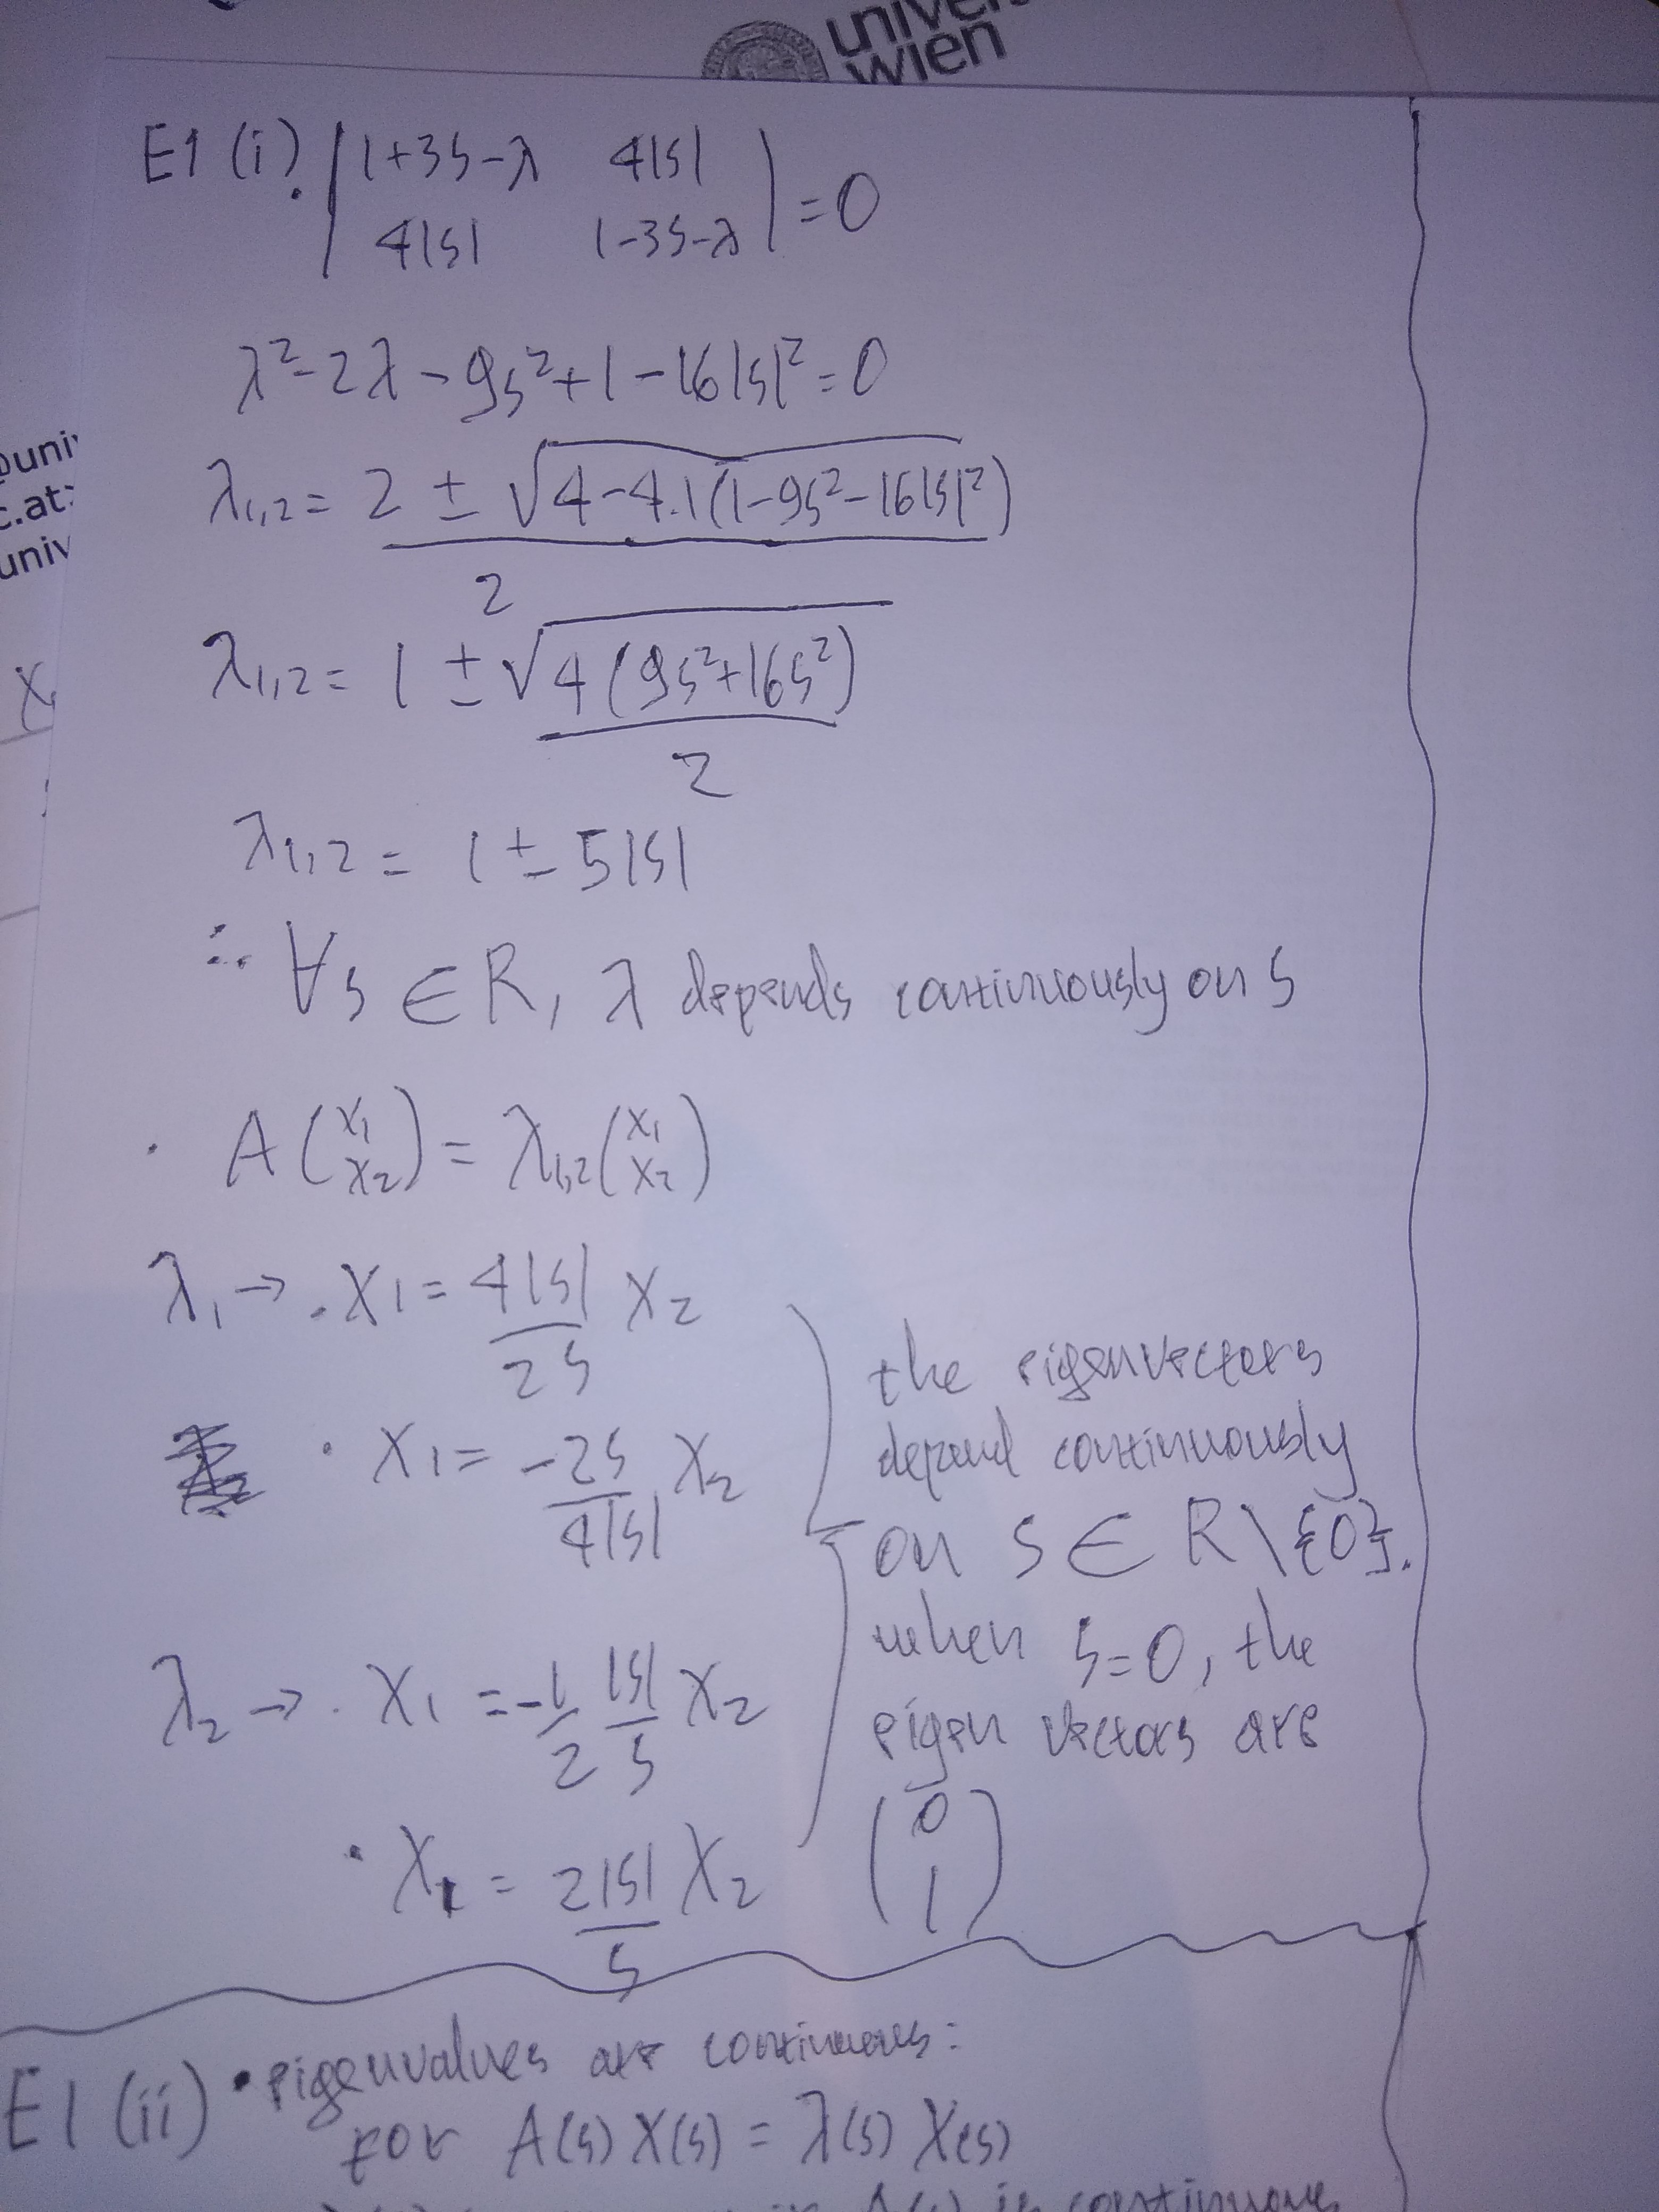 univer
wien
@uni
c.at
univ
X
E1 (i). |1+3s-λ 4|s||
|4|s| 1-3s-λ| = 0
λ²-2λ-9s²+1-16|s|²=0
λ1,2 = 2 ± √4-4.1(1-9s²-16|s|²)
2
λ1,2 = 1 ± √4(9s²+16s²)
2
λ1,2 = 1 ± 5|s|
∴ ∀s ∈ R, λ depends continuously on s
· A(x1 x2) = λ1,2(x1 x2)
λ1 → . X1 = 4|s|/2s X2
· X1 = -2s/4|s| X2
λ2 → . X1 = -1/2 |s|/s X2
· X1 = 2|s|/s X2
the eigenvectors
depend continuously
on s ∈ R\{0}.
when s=0, the
eigen vectors are
(0
1)
E1 (ii) • eigenvalues are continuous:
for A(s) X(s) = λ(s) X(s)
A(s) is continuous